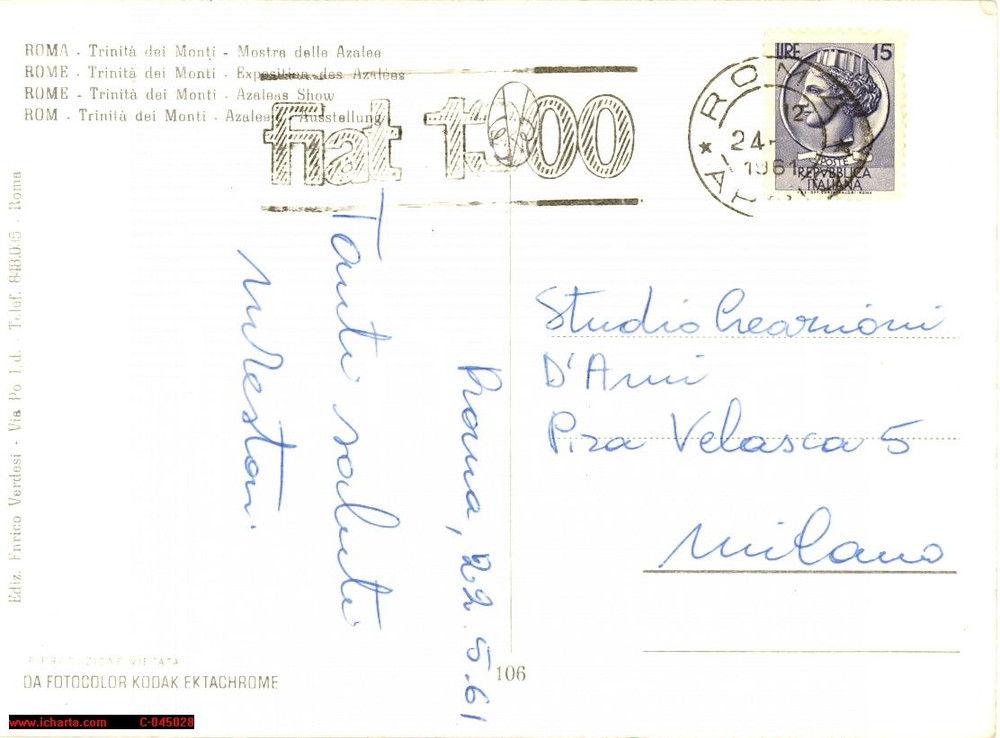 ROMA - Trinità dei Monti - Mostra delle Azalee
ROME - Trinità dei Monti - Exposition des Azalées
ROME - Trinità dei Monti - Azaleas Show
ROM - Trinità dei Monti - Azaleen Ausstellung
fiat 1300
ROMA
12
24-
1961
LIRE 15
POSTE
REPVBBLICA
ITALIANA
Ediz. Enrico Verdesi - Via Po 1d. - Telef. 848.035 - Roma
Roma, 22.5.61
Tanti saluti
Studio
D'Ami
P.za Velasca 5
Milano
RIPRODUZIONE VIETATA
DA FOTOCOLOR KODAK EKTACHROME
106
www.icharta.com C-045028